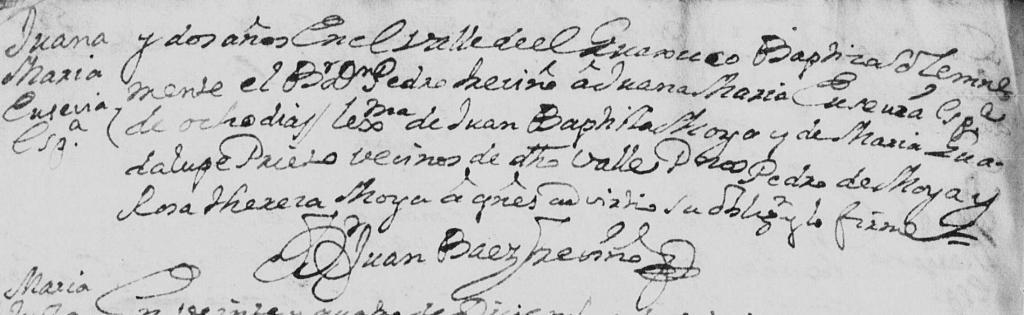 Juana
Maria
Eusevia
Esp.ª
y dos años En el valle de el Guanuco Baptisa Solemne
mente el Br Dn Pedro treviño â Juana Maria Eusevia Espª
de ocho dias lexma de Juan Baptista Moya y de Maria Gua-
dalupe Prieto vecinos de dho valle Pnos Pedro de Moya y
Rosa therera Moya â qnes advirtio su oblign y lo firme
Br Juan Baez treviño
Maria
En veinte y quatro de Diciem